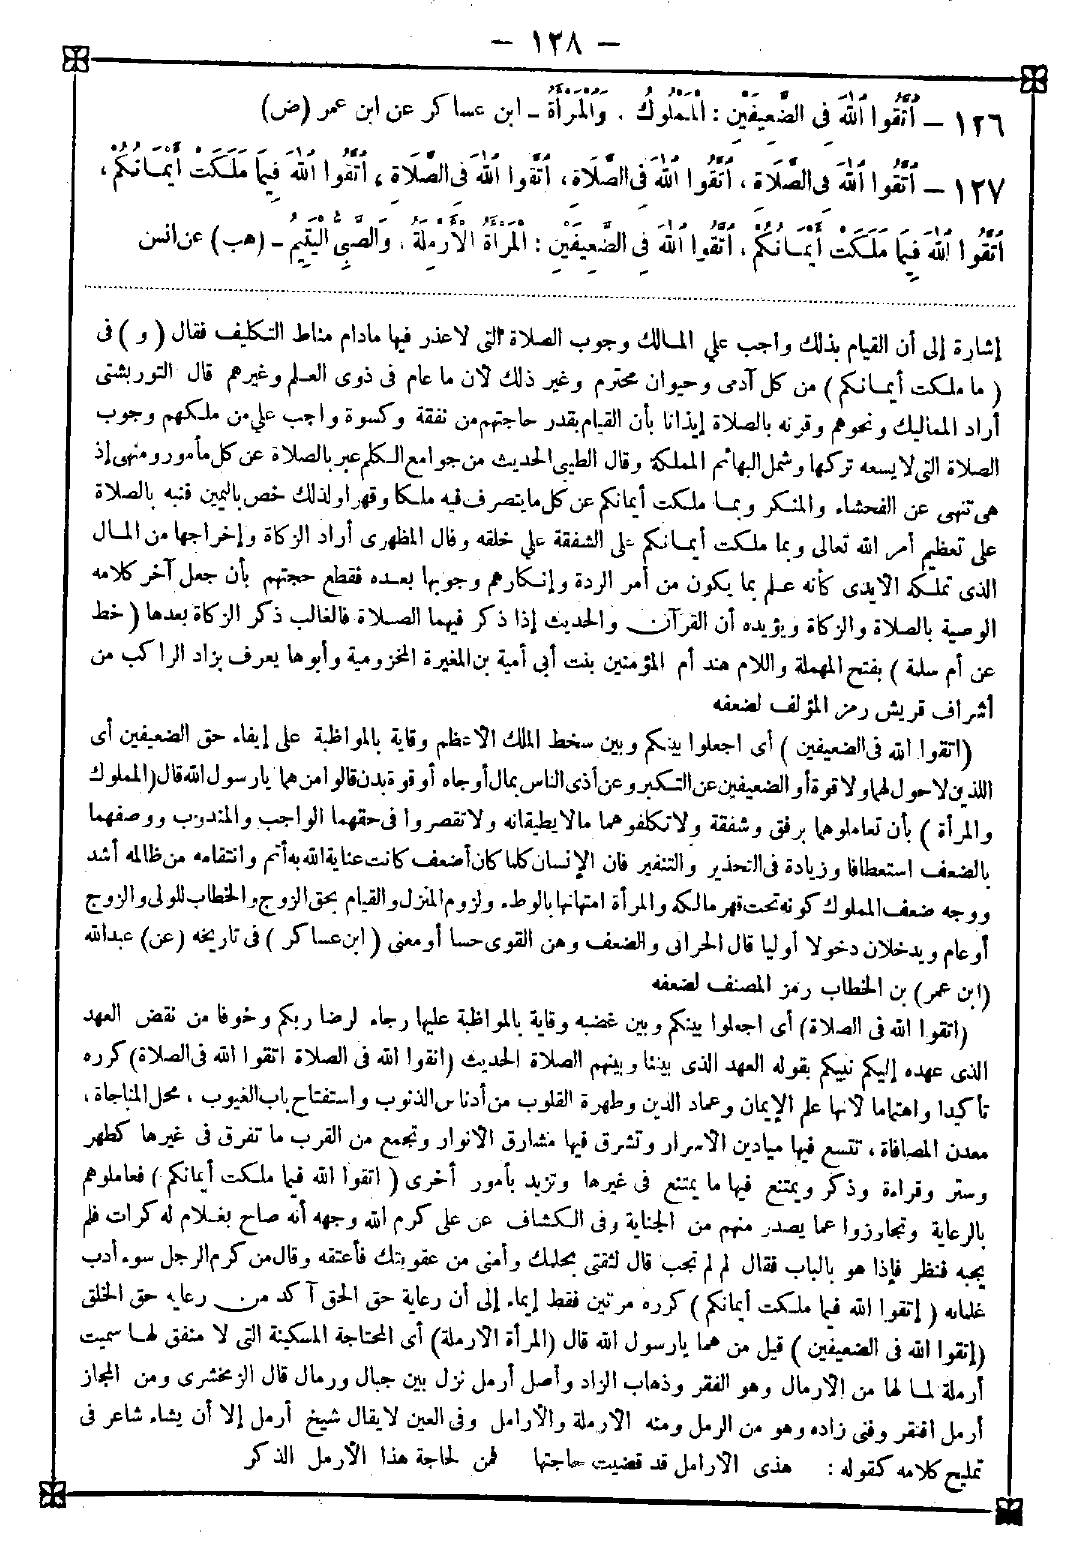 – ١٢٨ –
١٢٦ – اتَّقُوا اللَّهَ فِي الضَّعِيفَيْنِ : الْمَمْلُوكُ ، وَالْمَرْأَةُ – ابن عساكر عن ابن عمر (ض)
١٢٧ – اتَّقُوا اللَّهَ فِي الصَّلَاةِ ، اتَّقُوا اللَّهَ فِي الصَّلَاةِ ، اتَّقُوا اللَّهَ فِي الصَّلَاةِ ، اتَّقُوا اللَّهَ فِيمَا مَلَكَتْ أَيْمَانُكُمْ ،
اتَّقُوا اللَّهَ فِيمَا مَلَكَتْ أَيْمَانُكُمْ ، اتَّقُوا اللَّهَ فِي الضَّعِيفَيْنِ : الْمَرْأَةُ الْأَرْمَلَةُ ، وَالصَّبِيُّ الْيَتِيمُ – (هب) عن انس
إشارة إلى أن القيام بذلك واجب علي المالك وجوب الصلاة التي لاعذر فيها مادام مناط التكليف فقال ( و ) فى
( ما ملكت أيمانكم ) من كل آدمى وحيوان محترم وغير ذلك لأن ما عام فى ذوى العلم وغيرهم قال التوربشتى
أراد المماليك ونحوهم وقرنه بالصلاة إيذانا بأن القيام بقدر حاجتهم من نفقة وكسوة واجب علي من ملكهم وجوب
الصلاة التى لايسعه تركها وشمل البهائم المملكة وقال الطيبى الحديث من جوامع الكلم عبر بالصلاة عن كل مأمور ومنهى إذ
هى تنهى عن الفحشاء والمنكر وبما ملكت أيمانكم عن كل ما يتصرف فيه ملكا وقهرا ولذلك خص باليمين فنبه بالصلاة
على تعظيم أمر الله تعالى وبما ملكت أيمانكم على الشفقة علي خلقه وقال المظهرى أراد الزكاة وإخراجها من المال
الذى تملكه الأيدى كأنه علم بما يكون من أمر الردة وإنكارهم وجوبها بعده فقطع حجتهم بأن جعل آخر كلامه
الوصية بالصلاة والزكاة ويؤيده أن القرآن والحديث إذا ذكر فيهما الصلاة فالغالب ذكر الزكاة بعدها ( خط
عن أم سلمة ) بفتح المهملة واللام هند أم المؤمنين بنت أبى أمية بن المغيرة المخزومية وأبوها يعرف بزاد الراكب من
أشراف قريش رمز المؤلف لضعفه
(اتقوا الله فى الضعيفين ) أى اجعلوا بينكم وبين سخط الملك الأعظم وقاية بالمواظبة على إيفاء حق الضعيفين أى
اللذين لاحول لهما ولاقوة أو الضعيفين عن التكبر وعن أذى الناس بمال أوجاه أو قوة بدن قالوا من هما يارسول الله قال (المملوك
والمرأة ) بأن تعاملوهما برفق وشفقة ولا تكلفوهما مالا يطيقانه ولا تقصروا فى حقهما الواجب والمندوب ووصفهما
بالضعف استعطافا وزيادة فى التحذير والتنفير فان الإنسان كلما كان أضعف كانت عناية الله به أتم وانتقامه من ظالمه أشد
ووجه ضعف المملوك كونه تحت قهر مالكه والمرأة امتهانها بالوطء ولزوم المنزل والقيام بحق الزوج والخطاب للولى والزوج
أوعام ويدخلان دخولا أوليا قال الحرانى والضعف وهن القوى حسا أو معنى ( ابن عساكر ) فى تاريخه (عن) عبدالله
(ابن عمر) بن الخطاب رمز المصنف لضعفه
(اتقوا الله فى الصلاة) أى اجعلوا بينكم وبين غضبه وقاية بالمواظبة عليها رجاء لرضا ربكم وخوفا من نقض العهد
الذى عهده إليكم نبيكم بقوله العهد الذى بيننا وبينهم الصلاة الحديث (اتقوا الله فى الصلاة اتقوا الله فى الصلاة) كرره
تأكيدا واهتماما لأنها علم الإيمان وعماد الدين وطهرة القلوب من أدناس الذنوب واستفتاح باب الغيوب ، محل المناجاة ،
معدن المصافاة ، تتسع فيها ميادين الأسرار وتشرق فيها مشارق الأنوار وتجمع من القرب ما تفرق فى غيرها كطهر
وستر وقراءة وذكر ويمتنع فيها ما يمتنع فى غيرها وتزيد بأمور أخرى ( اتقوا الله فيما ملكت أيمانكم ) فعاملوهم
بالرعاية وتجاوزوا عما يصدر منهم من الجناية وفى الكشاف عن على كرم الله وجهه أنه صاح بغلام له كرات فلم
يجبه فنظر فإذا هو بالباب فقال لم لم تجب قال لثقتى بحلمك وأمنى من عقوبتك فأعتقه وقال من كرم الرجل سوء أدب
غلمانه ( إتقوا الله فيما ملكت أيمانكم ) كرره مرتين فقط إيماء إلى أن رعاية حق الحق آكد من رعاية حق الخلق
(إتقوا الله فى الضعيفين ) قيل من هما يارسول الله قال (المرأة الأرملة) أى المحتاجة المسكينة التى لا منفق لها سميت
أرملة لما لها من الإرمال وهو الفقر وذهاب الزاد وأصل أرمل نزل بين جبال ورمال قال الزمخشرى ومن المجاز
أرمل افتقر وفنى زاده وهو من الرمل ومنه الأرملة والأرامل وفى العين لايقال شيخ أرمل إلا أن يشاء شاعر فى
تمليح كلامه كقوله : هذى الأرامل قد قضيت حاجتها فمن لحاجة هذا الأرمل الذكر